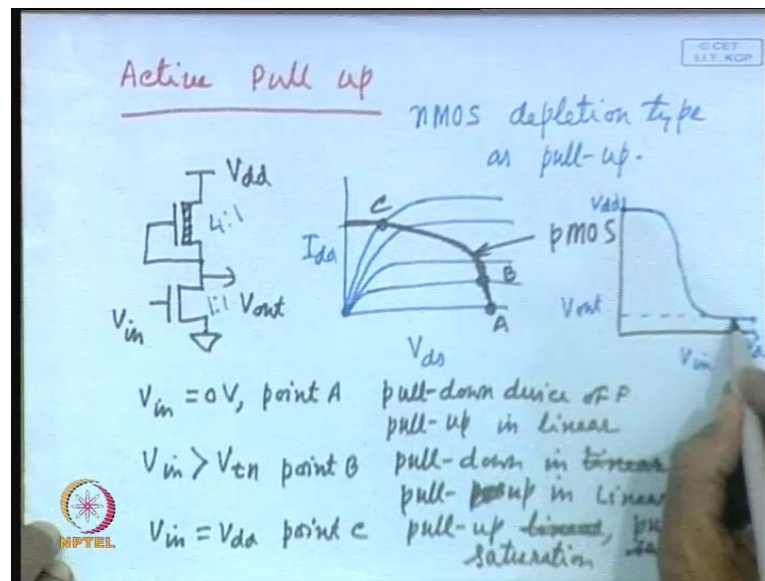 © CET
I.I.T. KGP
Active Pull up
nMOS depletion type
as pull-up.
Vdd
4:1
1:1
Vin
Vout
Idd
C
B
A
Vds
pMOS
Vdd
Vout
Vin
Vin = 0V, point A pull-down device OFF
pull-up in linear
Vin > Vtn point B pull-down in linear
pull-up in Linear
Vin = Vdd point C pull-up linear,
saturation
NPTEL